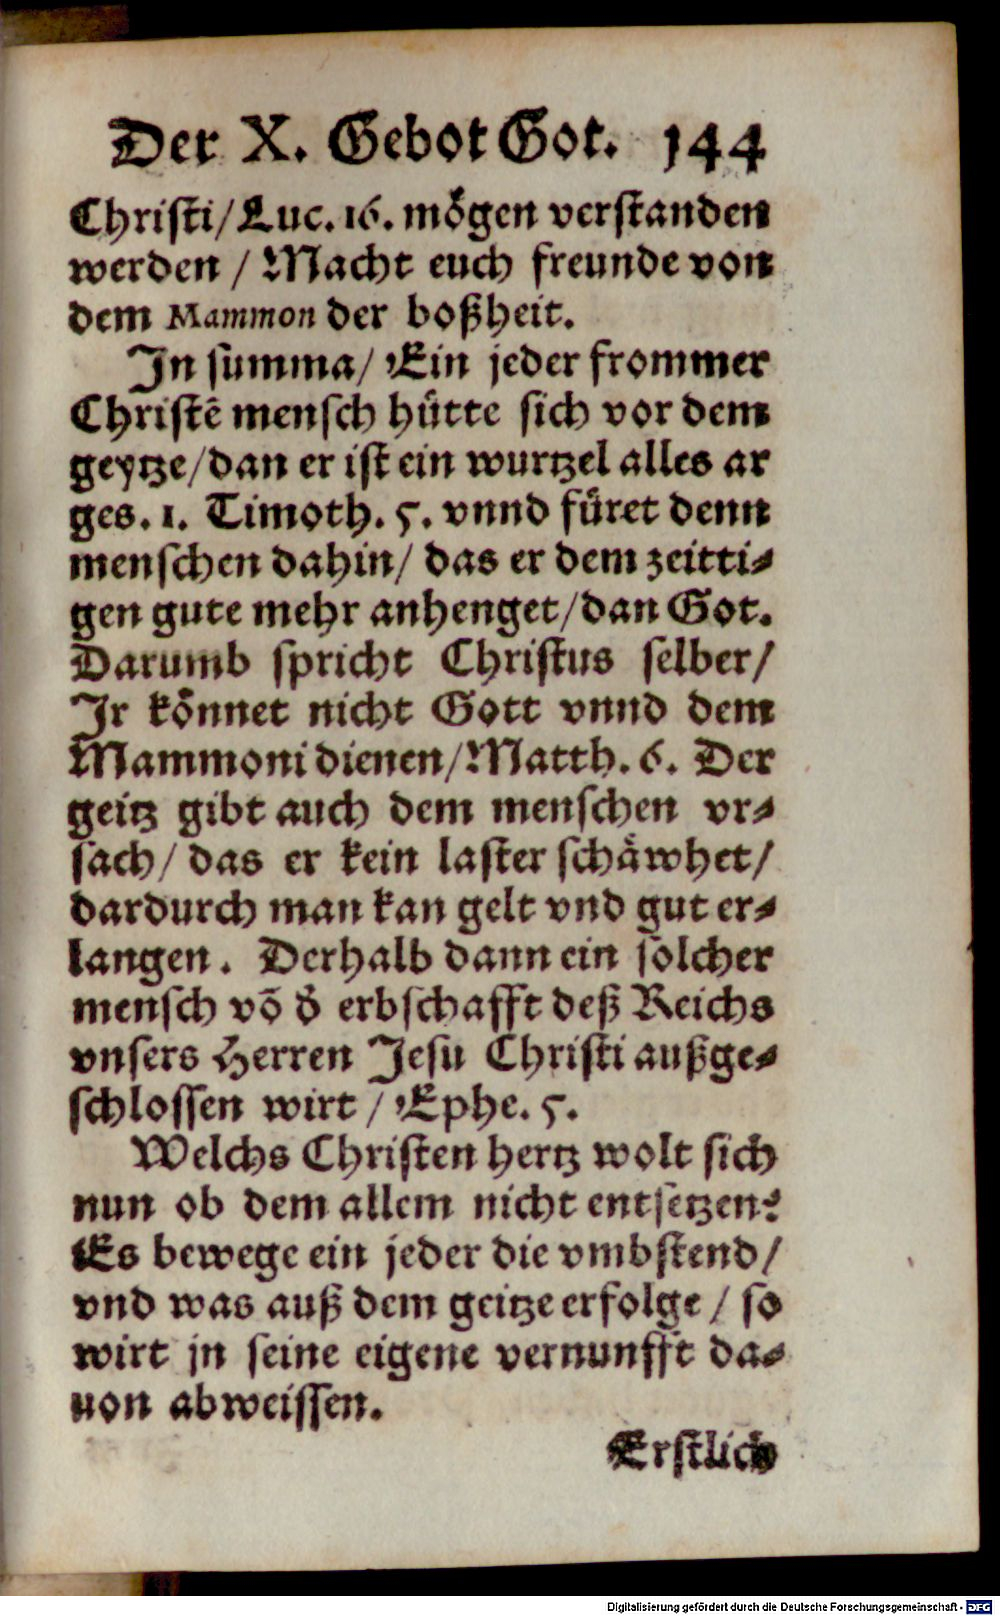 Der X. Gebot Got. 144
Christi/ Luc. 16. mögen verstanden
werden / Macht euch freunde von
dem Mammon der boßheit.
In summa/ Ein jeder frommer
Christē mensch hütte sich vor dem
geytze/dan er ist ein wurtzel alles ar
ges. 1. Timoth. 5. vnnd füret denn
menschen dahin/ das er dem zeitti-
gen gute mehr anhenget/dan Got.
Darumb spricht Christus selber/
Jr können nicht Gott vnnd dem
Mammoni dienen/Matth. 6. Der
geitz gibt auch dem menschen vr-
sach/ das er kein laster schäwhet/
dardurch man kan gelt vnd gut er-
langen. Derhalb dann ein solcher
mensch võ d̕ erbschafft deß Reichs
vnsers Herren Jesu Christi außge-
schlossen wirt / Ephe. 5.
Welchs Christen hertz wolt sich
nun ob dem allem nicht entsetzen?
Es bewege ein jeder die vmbstend/
vnd was auß dem geitze erfolge / so
wirt jn seine eigene vernunfft da-
uon abweissen.
Erstlich
Digitalisierung gefördert durch die Deutsche Forschungsgemeinschaft - DFG